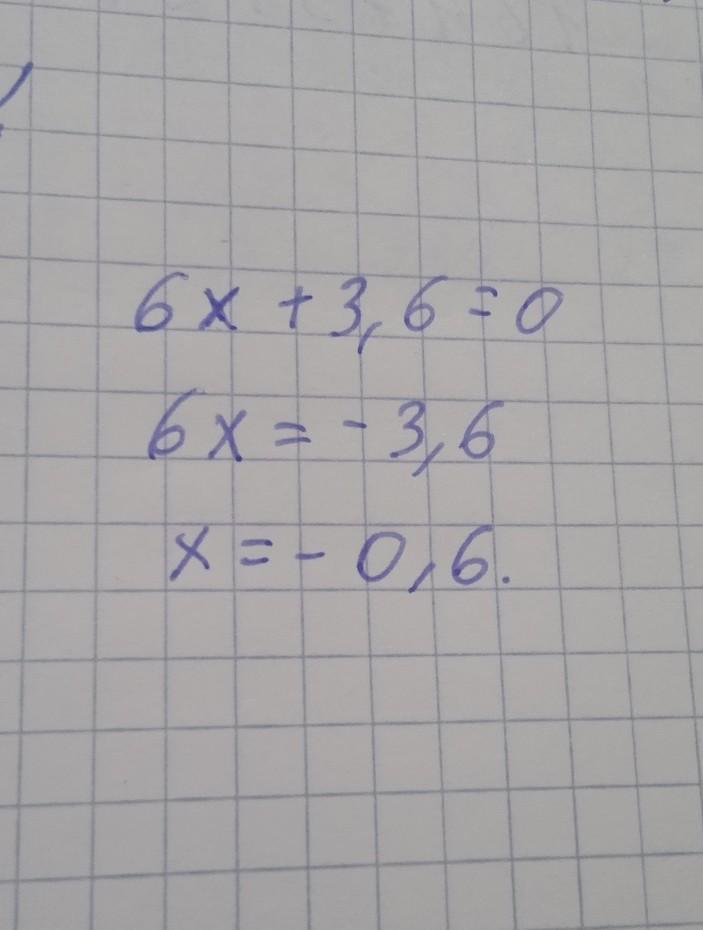 6x + 3,6 = 0
6x = - 3,6
x = - 0,6.